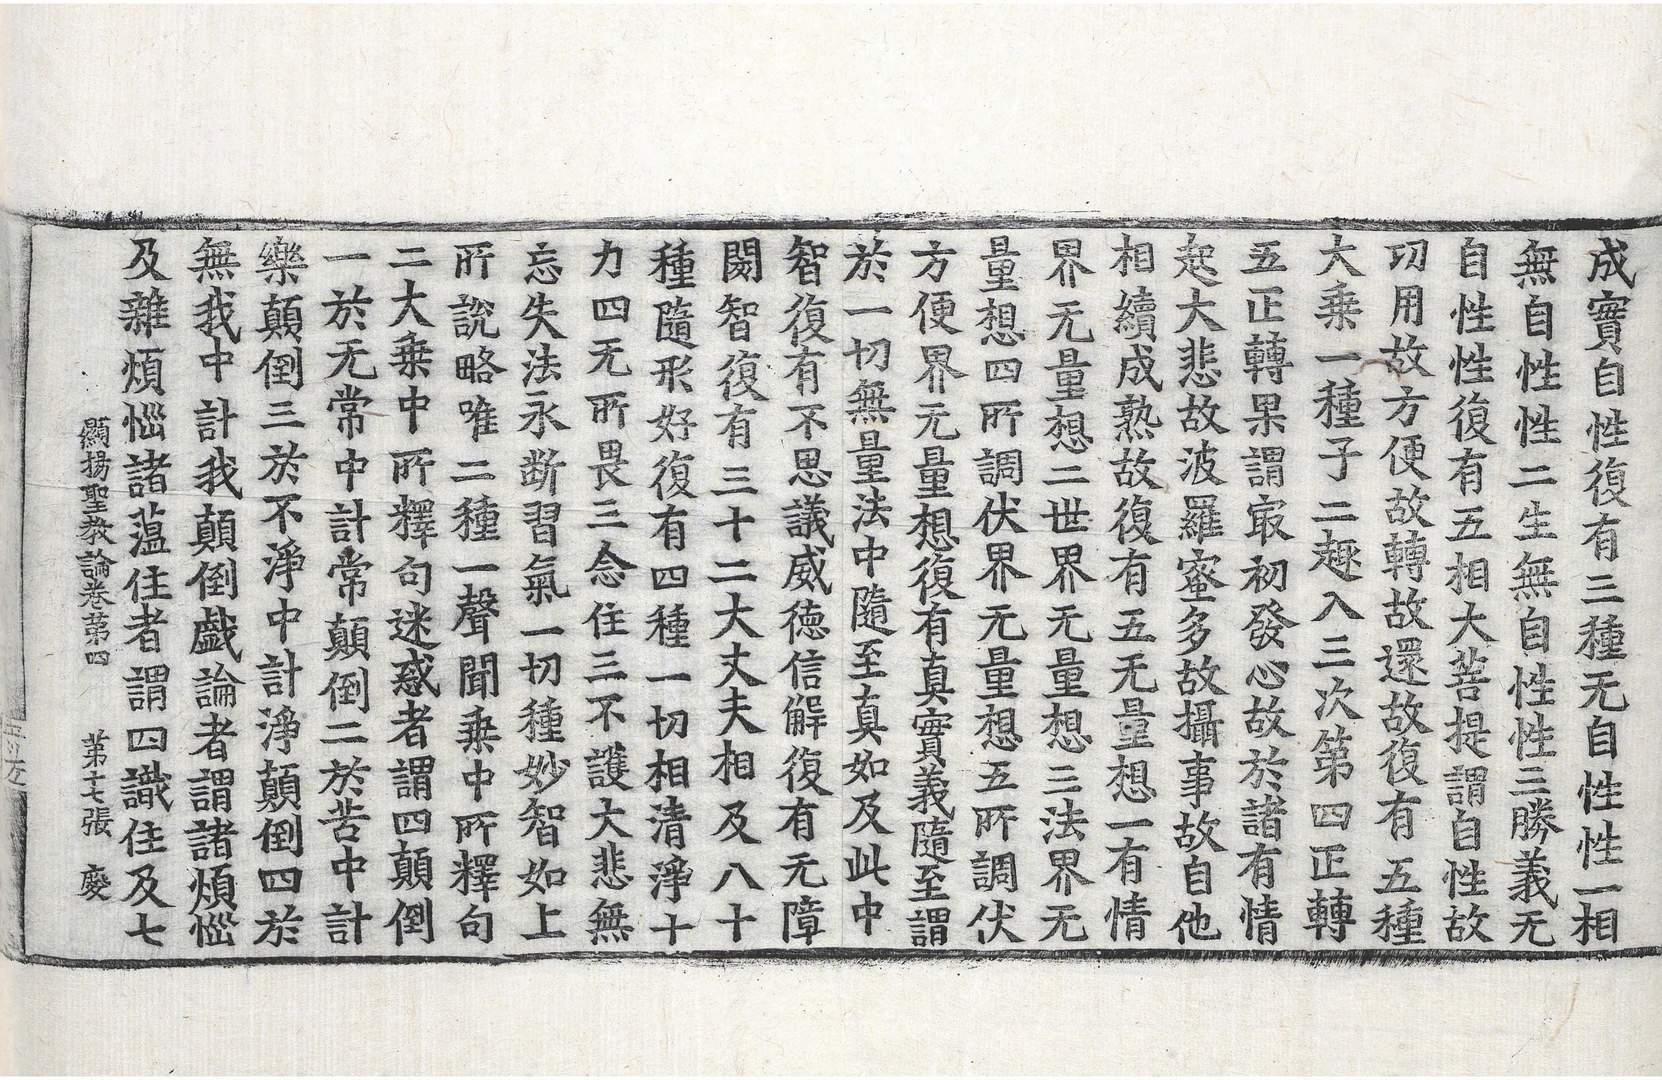 成實自性復有三種无自性性一相
無自性性二生無自性性三勝義无
自性性復有五相大菩提謂自性故
㓛用故方便故轉故還故復有五種
大乗一種子二趣入三次第四正轉
五正轉果謂㝡初發心故於諸有情
起大悲故波羅蜜多故攝事故自他
相續成熟故復有五无量想一有情
界无量想二世界无量想三法界无
量想四所調伏界无量想五所調伏
方便界无量想復有真實義隨至謂
於一切無量法中隨至真如及此中
智復有不思議威徳信解復有无障
閡智復有三十二大丈夫相及八十
種隨形好復有四種一切相清淨十
力四无所畏三念住三不護大悲無
忘失法永断習氣一切種妙智如上
所說略唯二種一聲聞乗中所釋句
二大乗中所釋句迷惑者謂四顛倒
一於无常中計常顛倒二於苦中計
樂顛倒三於不淨中計淨顛倒四於
無我中計我顛倒戲論者謂諸煩惱
及雜煩惱諸薀住者謂四識住及七
顯揚聖教論卷第四 第十七張 慶